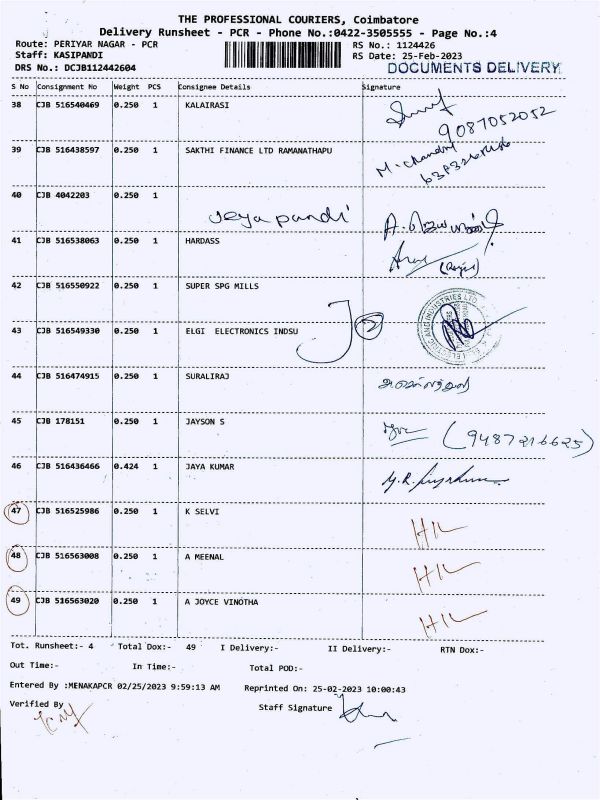 THE PROFESSIONAL COURIERS, Coimbatore
Delivery Runsheet - PCR - Phone No.:0422-3505555 - Page No.:4
Route: PERIYAR NAGAR - PCR RS No.: 1124426
Staff: KASIPANDI RS Date: 25-Feb-2023
DRS No.: DCJB112442604 DOCUMENTS DELIVERY
S No Consignment No Weight PCS Consignee Details Signature
38 CJB 516540469 0.250 1 KALAIRASI
9087052052
39 CJB 516438597 0.250 1 SAKTHI FINANCE LTD RAMANATHAPU
40 CJB 4042203 0.250 1
Jeya pandi
41 CJB 516538063 0.250 1 HARDASS
42 CJB 516550922 0.250 1 SUPER SPG MILLS
43 CJB 516549330 0.250 1 ELGI ELECTRONICS INDSU
44 CJB 516474915 0.250 1 SURALIRAJ
45 CJB 178151 0.250 1 JAYSON S
(9487216625)
46 CJB 516436466 0.424 1 JAYA KUMAR
47 CJB 516525986 0.250 1 K SELVI
48 CJB 516563008 0.250 1 A MEENAL
49 CJB 516563020 0.250 1 A JOYCE VINOTHA
Tot. Runsheet:- 4 Total Dox:- 49 I Delivery:- II Delivery:- RTN Dox:-
Out Time:- In Time:- Total POD:-
Entered By :MENAKAPCR 02/25/2023 9:59:13 AM Reprinted On: 25-02-2023 10:00:43
Verified By Staff Signature